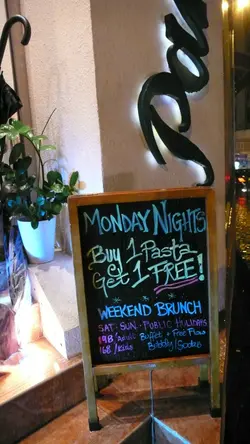 MONDAY NIGHTS
Buy 1 Pasta
Get 1 FREE!
WEEKEND BRUNCH
SAT · SUN · PUBLIC HOLIDAYS
198/adult Buffet + Free Flow
168/kids Bubbly/Sodas